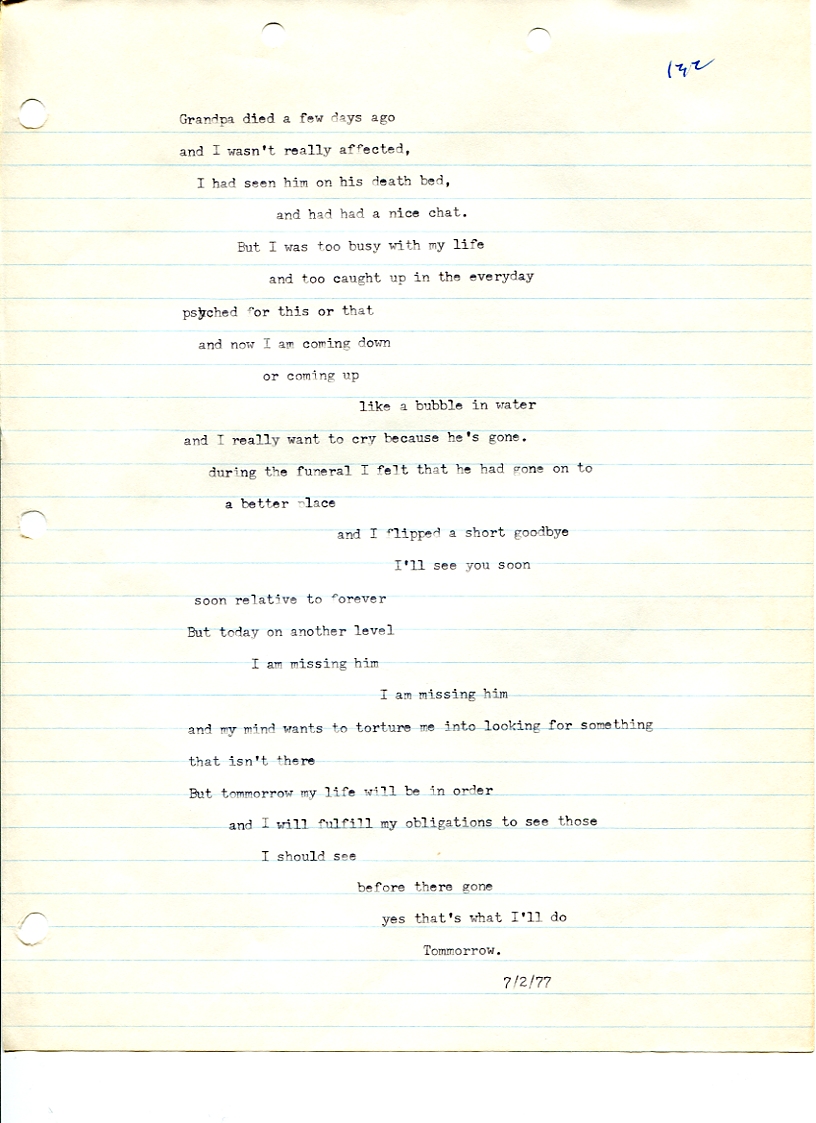 132
Grandpa died a few days ago
and I wasn't really affected,
I had seen him on his death bed,
and had had a nice chat.
But I was too busy with my life
and too caught up in the everyday
psyched for this or that
and now I am coming down
or coming up
like a bubble in water
and I really want to cry because he's gone.
during the funeral I felt that he had gone on to
a better place
and I flipped a short goodbye
I'll see you soon
soon relative to forever
But today on another level
I am missing him
I am missing him
and my mind wants to torture me into looking for something
that isn't there
But tommorrow my life will be in order
and I will fulfill my obligations to see those
I should see
before there gone
yes that's what I'll do
Tommorrow.
7/2/77